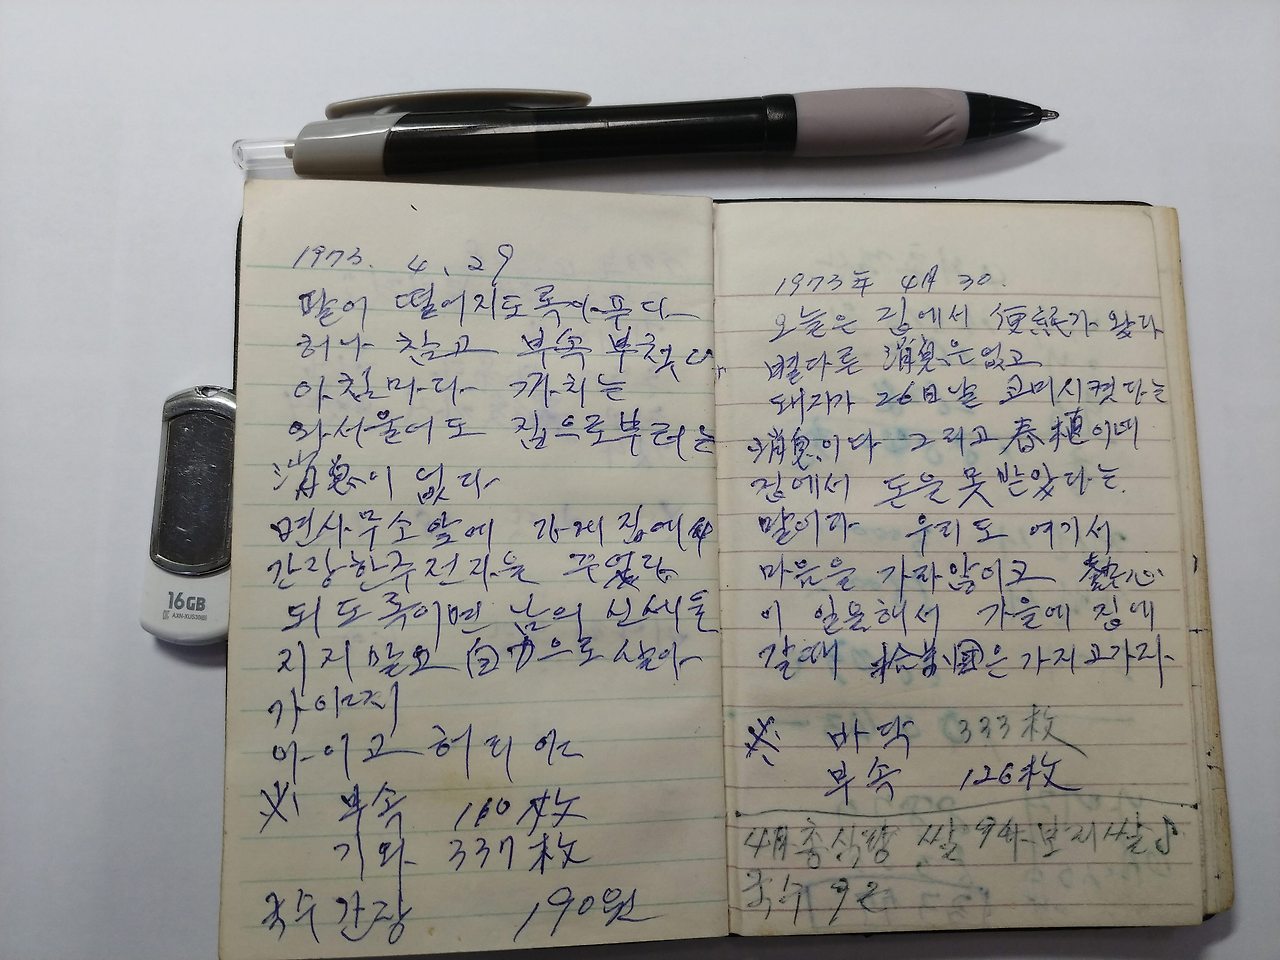 1973. 4. 29
팔이 떨어지도록 아푸다
허나 참고 부속 부쳣다
아침마다 까치는
와서 울어도 집으로부터는
消息이 없다
면사무소 앞에 가게집에서
간장 한주전자를 꾸었다
되도록이면 남의 신세를
지지 말고 自力으로 살아
가야지
아이고 허리야
※ 부속 160枚
기와 337枚
국수 간장 190원
1973年 4月 30.
오늘은 집에서 便紙가 왔다
별다른 消息은 없고
돼지가 26日날 교미시켯다는
消息이다 그리고 春植이에
집에서 돈을 못받았다는
말이다 우리도 여기서
마음을 가라앉이고 熱心
이 일을 해서 가을에 집에
갈때 은 가지고 가리라
※ 바닥 333枚
부속 126枚
4月 총 식량 쌀 9斗 보리쌀
국수 9관
16GB
AXN-XUS30(B)